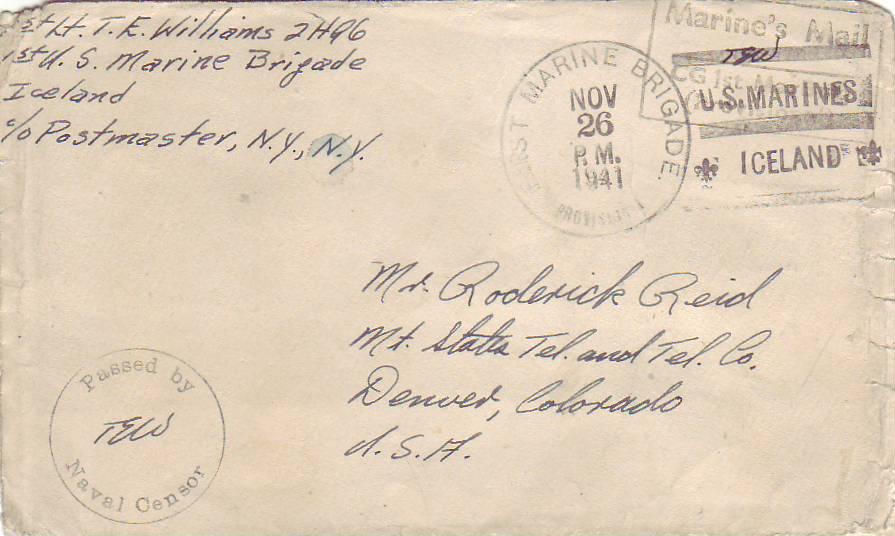 1st Lt. T. E. Williams 2H96
1st U. S. Marine Brigade
Iceland
c/o Postmaster, N.Y., N.Y.
FIRST MARINE BRIGADE
NOV
26
P.M.
1941
Marine's Mail
TEW
CG 1st
U.S. MARINES
ICELAND
Mr. Roderick Reid
Mt. States Tel. and Tel. Co.
Denver, Colorado
U.S.A.
Passed by
TEW
Naval Censor